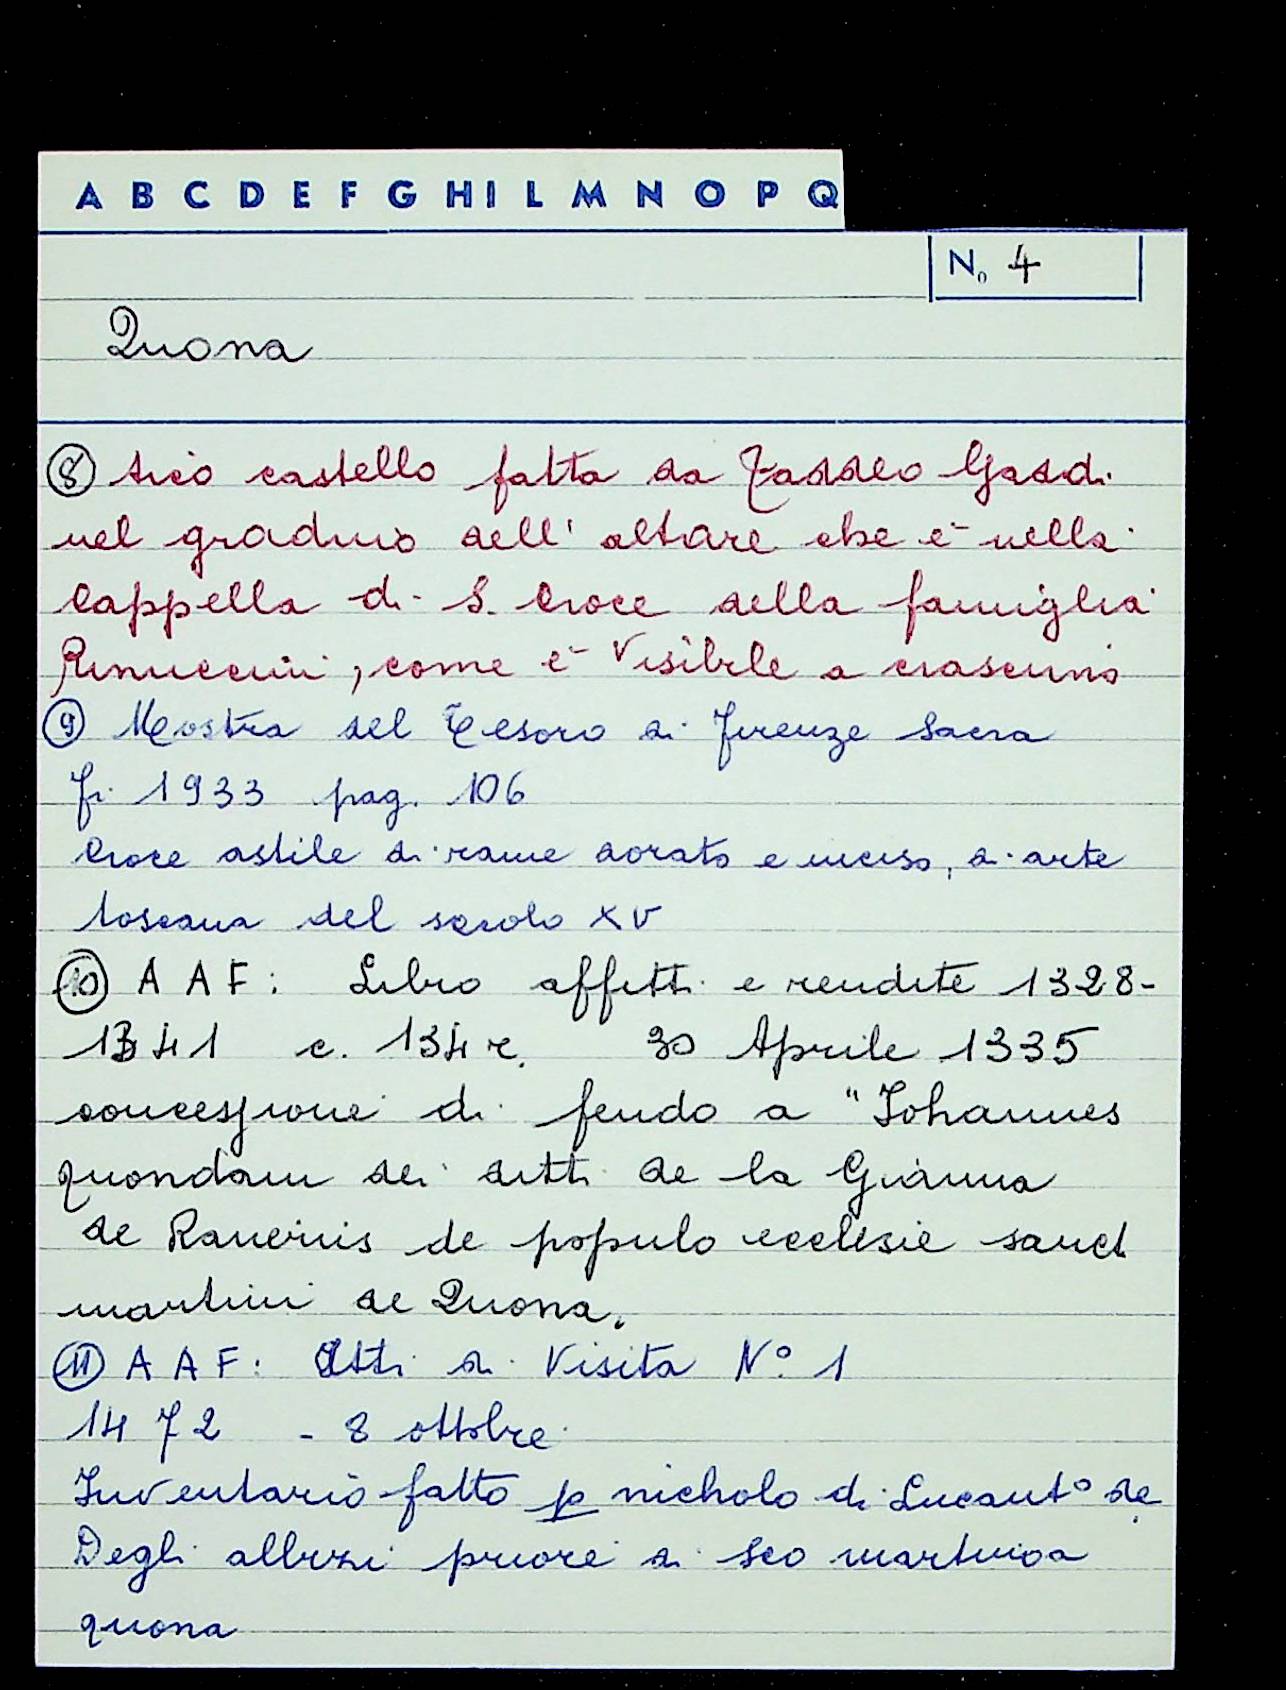 A B C D E F G H I L M N O P Q
No 4
Quona
8 dico castello fatta da Taddeo Gaddi
nel gradino dell' altare che è nella
Cappella di S. Croce della famiglia
Rinuccini, come è visibile a ciascuno
9 Mostra del Tesoro di Firenze Sacra
Fi. 1933 pag. 106
Croce astile di rame dorato e inciso, di arte
toscana del secolo XV
10 A A F: Libro affitti e rendite 1328-
1341 c. 134 r. 30 Aprile 1335
concessione di feudo a "Johannes
quondam dei ditti de la Gianna
de Ranerinis de populo ecclesie sanct
martini de Quona.
11 A A F: Atti di Visita N° 1
1472 - 8 ottobre
Inventario fatto p nicholo di Lucant° de
Degli albizi priore di Sco martino a
quona